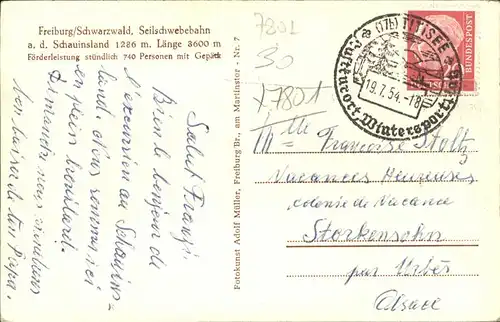 Freiburg/Schwarzwald, Seilschwebebahn
a. d. Schauinsland 1286 m. Länge 3600 m
Förderleistung stündlich 740 Personen mit Gepäck
Salut Franzi
Bien le bonjour de
l'excursion au Schauins-
land. Nous sommes ici
en plein brouillard.
Dimanche nous viendrons
bon baiser de ton Papa.
Fotokunst Adolf Müller, Freiburg Br., am Martinstor - Nr. 7
7801
30
(17b) TITISEE
19.7.54.-18
Luftkurort Wintersportplatz
DEUTSCHE BUNDESPOST
+7801
Mlle Françoise Stoltz
Vacances Heureuses
colonie de Vacance
Storkensohn
par Urbès
Alsace